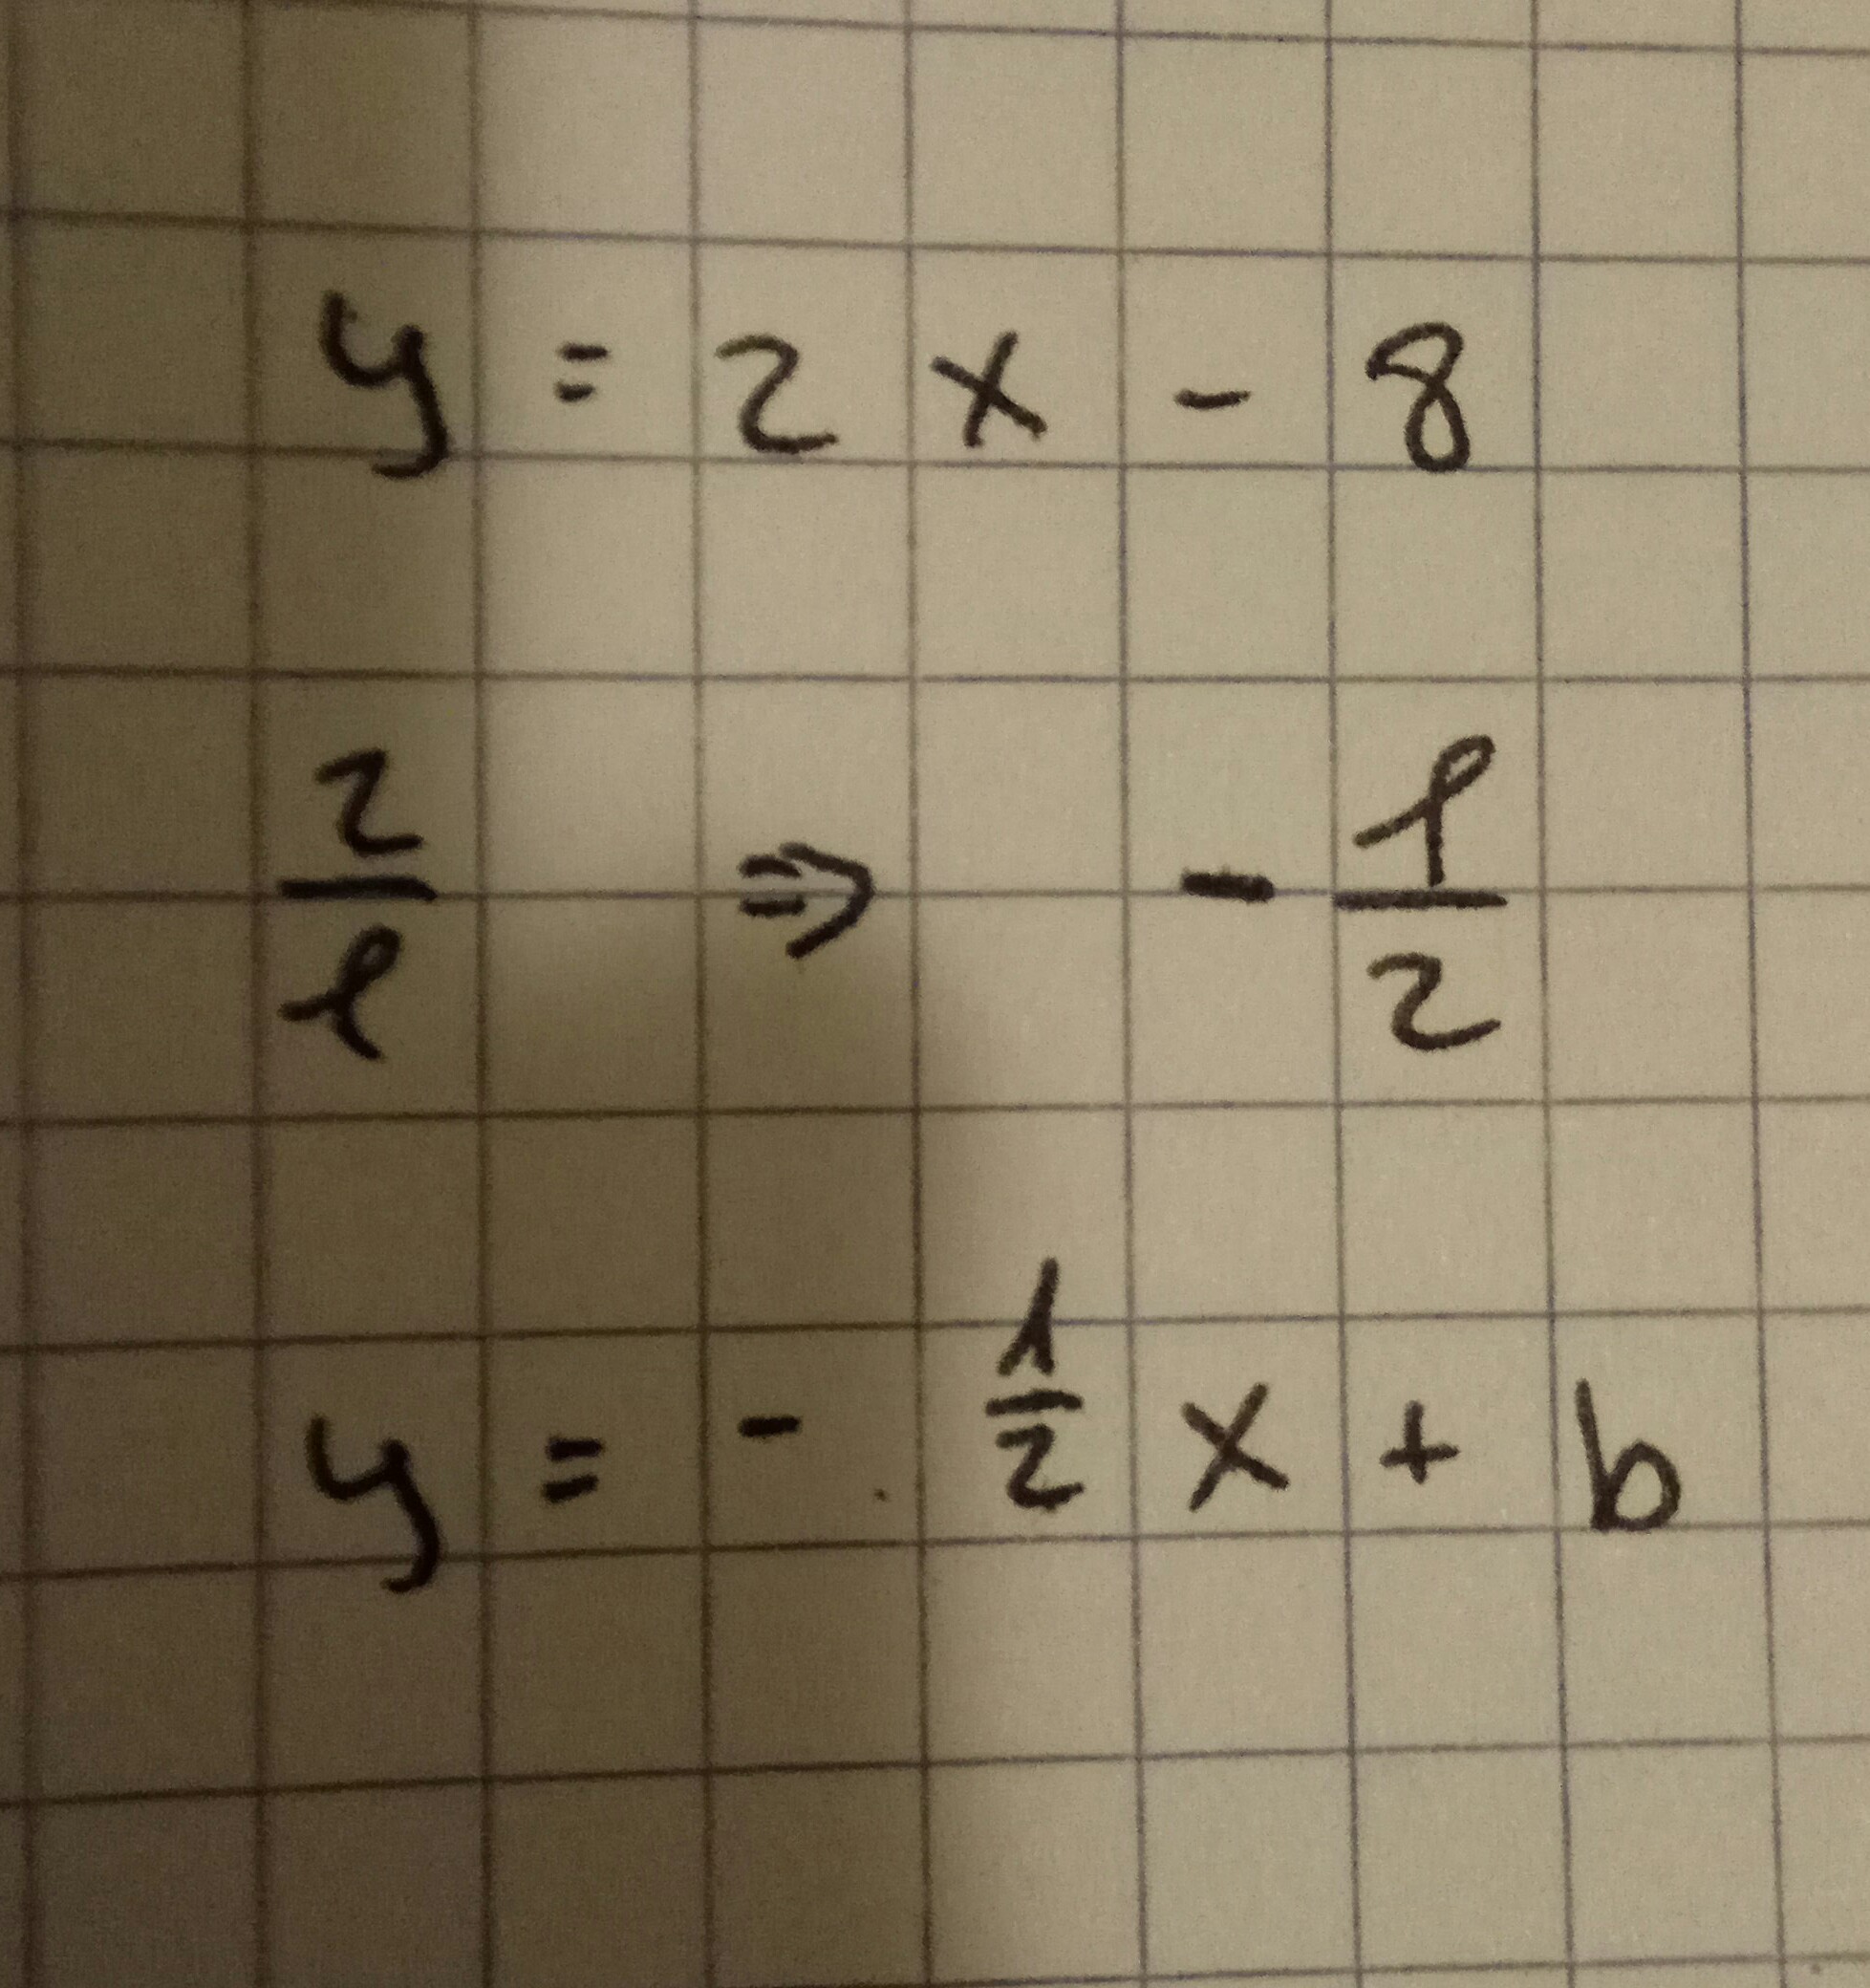 y = 2x - 8
2/1 ⇒ - 1/2
y = - 1/2 x + b